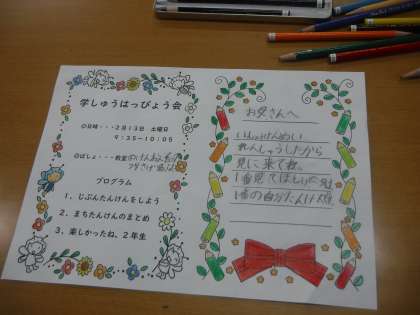 学しゅうはっぴょう会
◎日時・・・２月１３日 土曜日
９：３５～１０：０５
◎ばしょ・・・教室
プログラム
１、じぶんたんけんをしよう
２、まちたんけんのまとめ
３、楽しかったね、２年生
お父さんへ
いっしょうけんめい
れんしゅうしたから
見に来てね。
１番見てほしい